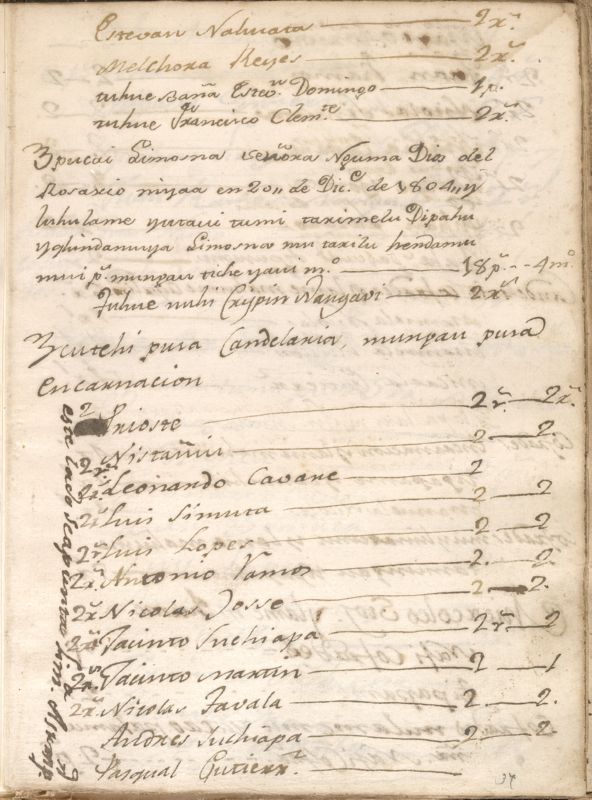 Estevan Nahuata 2 rs.
Melchora Reyes 2 rs.
tuhue Bana Estevn. Domingo 1 p.
tuhue Francisco Clemte 2 rs.
3 pucai Limosna señora Nquma Dios del
Rosario miyaa en 20,, de Dice. de 1804,, y
luhulame yutavi tumi tarimelu Dipahu
yqhindamuya Limosna mu tarilu hendamu
mui p. munpau tiche yavi mo. 18 p. - - 4 mo.
tuhue nuhi Crispin Nangavi 2 rs.
3 cutehi pura Candelaria, munpau pura
encarnacion
2 Prioste 2 r. 2 rs.
Nistamui 2 2
2 rs. Leonardo Cavane 2
2 r Luis Simuta 2 2
2 r Luis Lopes 2 2
2 rs. Antonio Vamos 2. 2.
2 rs. Nicolas Josse 2 2.
2 rs. Jacinto Suchiapa 2 r. 2
2 rs. Jacinto martin 2 1
2 rs. Nicolas Tavala 2. 2.
Andres Suchiapa 2 2
Pasqual Gutierrs.
este lado se apuntas